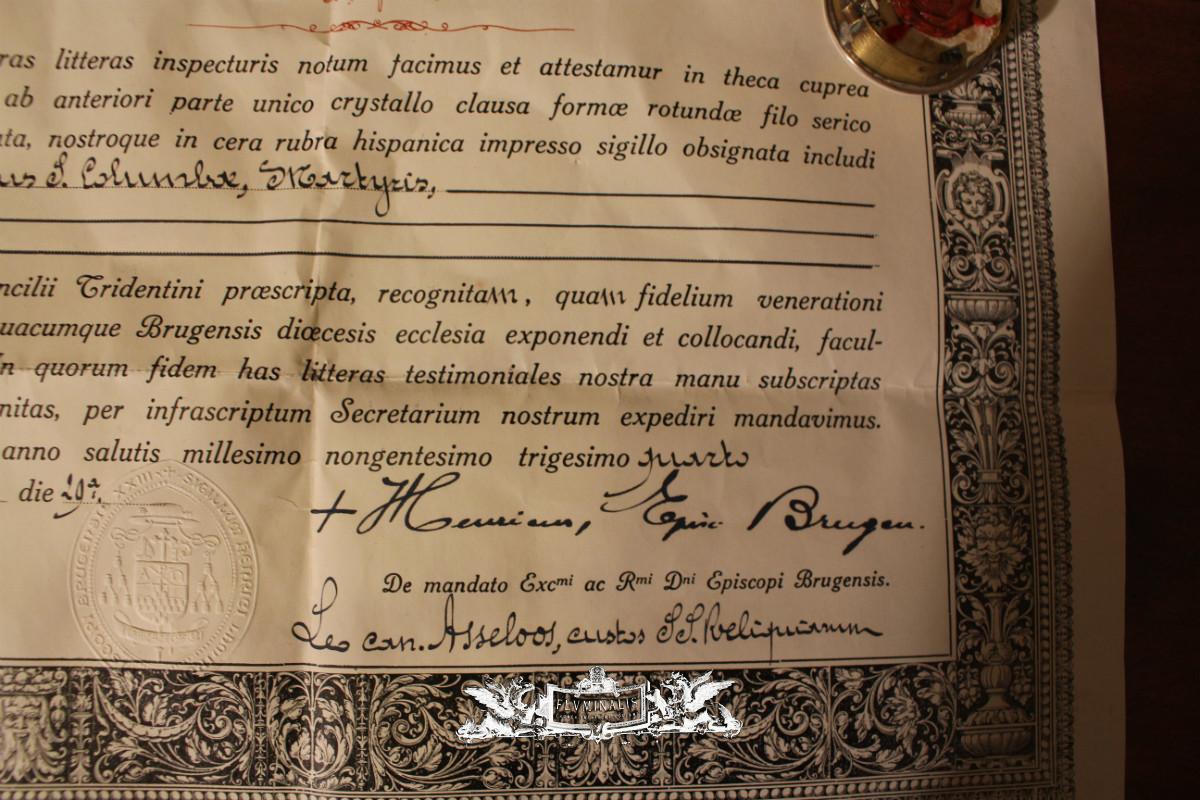 ras litteras inspecturis notum facimus et attestamur in theca cuprea
ab anteriori parte unico crystallo clausa formæ rotundæ filo serico
ata, nostroque in cera rubra hispanica impresso sigillo obsignata includi
us S. Columbæ, Martyris,
ncilii Tridentini præscripta, recognitam, quam fidelium venerationi
uacumque Brugensis diœcesis ecclesia exponendi et collocandi, facul-
In quorum fidem has litteras testimoniales nostra manu subscriptas
nitas, per infrascriptum Secretarium nostrum expediri mandavimus.
anno salutis millesimo nongentesimo trigesimo quarto
die 19ª
+ Henricus, Episc. Brugen.
De mandato Excmi ac Rmi Dni Episcopi Brugensis.
Leo can. Asseloos, custos SS. Reliquiarum
FLUMINALIS